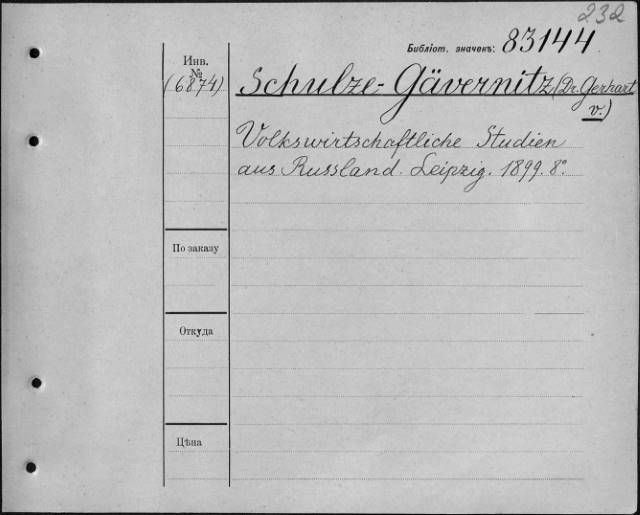 232
Библіот. значекъ: 83144
Инв.
№
(6874)
Schulze-Gävernitz (Dr. Gerhart
v.)
Volkswirtschaftliche Studien
aus Russland. Leipzig. 1899. 8°.
По заказу
Откуда
Цѣна